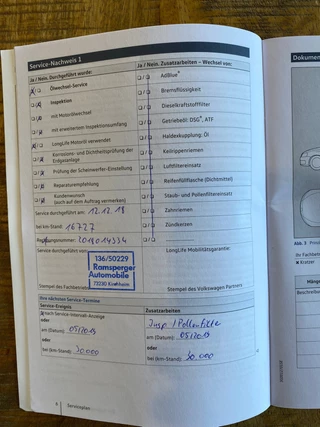 Service-Nachweis 1
Ja / Nein. Durchgeführt wurde:
Ölwechsel-Service
Inspektion
mit Motorölwechsel
mit erweitertem Inspektionsumfang
LongLife Motoröl verwendet
Korrosions- und Dichtheitsprüfung der Erdgasanlage
Prüfung der Scheinwerfer-Einstellung
Reparaturempfehlung
Kundenwunsch
(auch auf dem Auftrag vermerken)
Service durchgeführt am: 12.12.18
bei km-Stand: 16727
Rechnungsnummer: 2018014334
Service durchgeführt von:
136/50229
Ramsperger
Automobile
73230 Kirchheim
Stempel des Fachbetriebs
Ja / Nein. Zusatzarbeiten – Wechsel von:
AdBlue®
Bremsflüssigkeit
Dieselkraftstofffilter
Getriebeöl: DSG®, ATF
Haldexkupplung: Öl
Keilrippenriemen
Luftfiltereinsatz
Reifenfüllflasche (Dichtmittel)
Staub- und Pollenfiltereinsatz
Zahnriemen
Zündkerzen
LongLife Mobilitätsgarantie:
Stempel des Volkswagen Partners
Ihre nächsten Service-Termine
Service-Ereignis
nach Service-Intervall-Anzeige
oder
am (Datum): 05/2019
oder
bei (km-Stand): 30000
Zusatzarbeiten
Insp / Pollenfilter
am (Datum): 05/2019
oder
bei (km-Stand): 30.000
6 Serviceplan
Dokumen
Abb. 3
Ihr Fachbetri
Kratzer
Mänge
Beschreibu